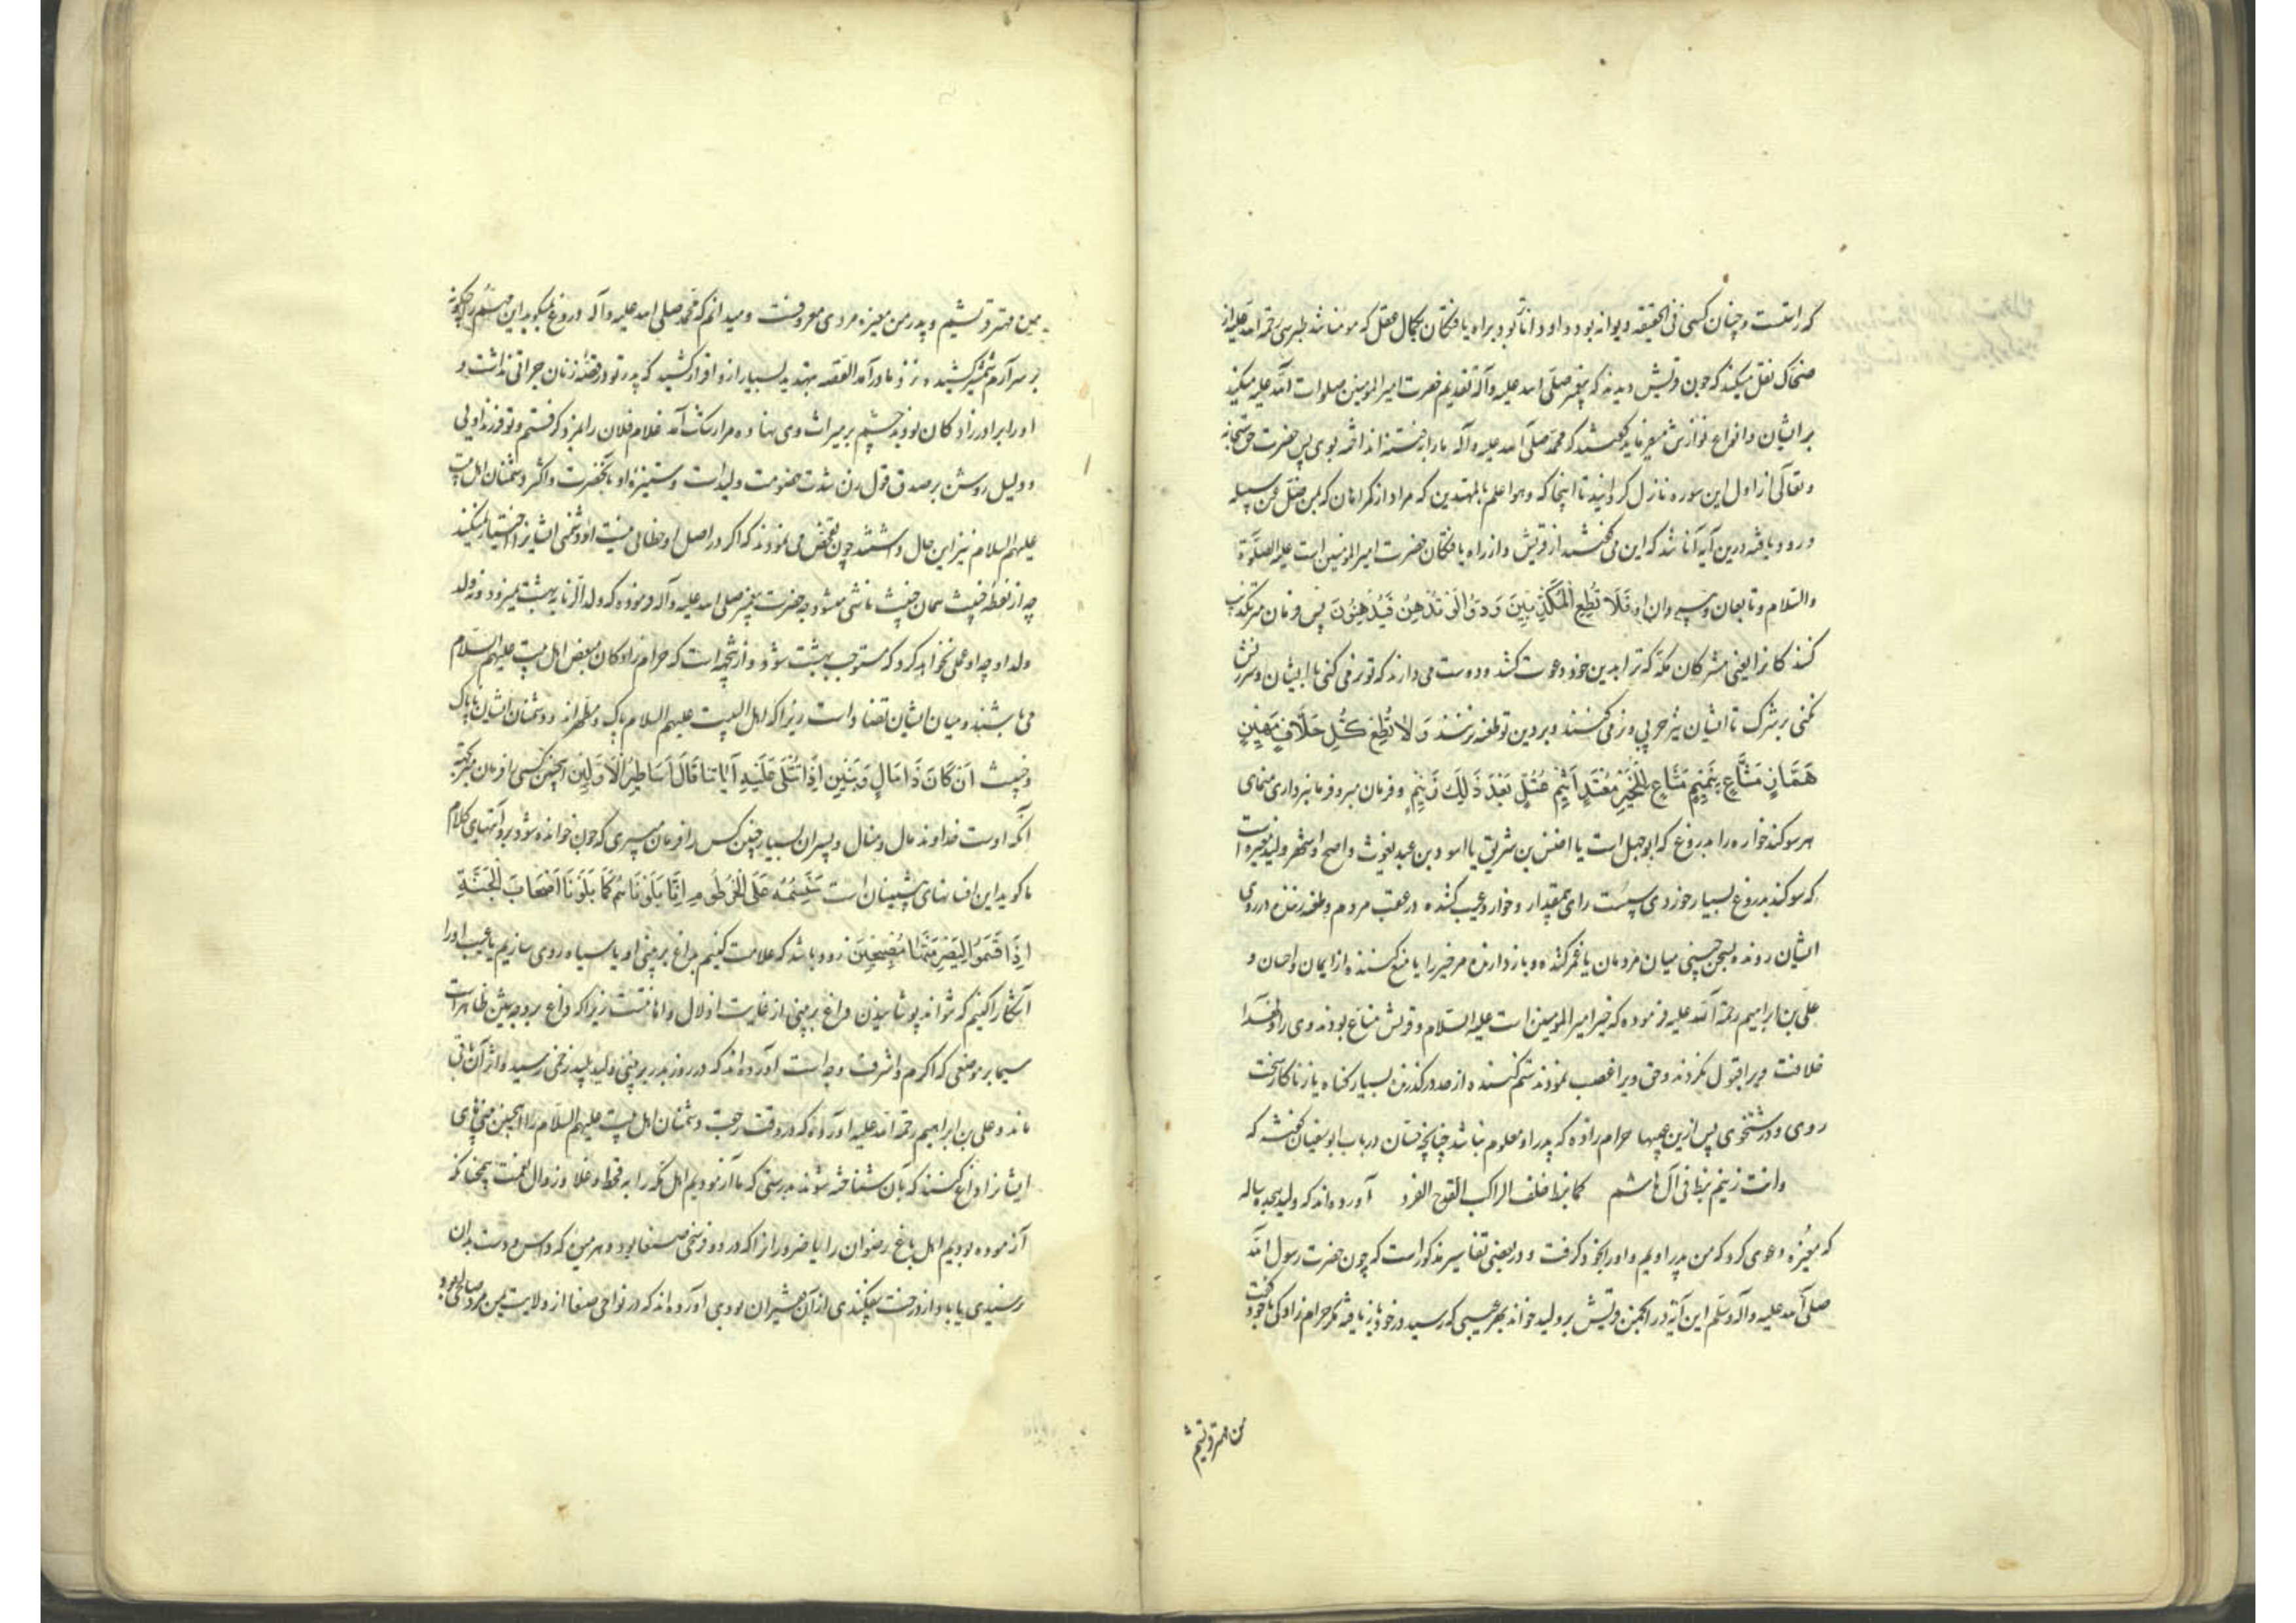 که راتست و چنان کسی فی الحقیقه دیوانه بود و او داناتر بود براه یافتگان بکمال عقل که مومنا شد طبرسی رحمة الله علیه از
ضحاک نقل میکند که چون قریش دیدند که پیغمبر صلی الله علیه وآله تقدیم حضرت امیر المومنین صلوات الله علیه میکند
بر ایشان و انواع نوازش میفرماید گفتند که محمد صلی الله علیه وآله ما را بوی پس حضرت حق سبحانه
و تعالی از اول این سوره نازل گردانید تا اینجا که و هو اعلم بالمهتدین که مراد از گمراهان که بمن ضل عن سبیله
ورود یافته درین آیه آنانند که این می گفتند از قریش و از راه یافتگان حضرت امیر المومنین است علیه الصلوة
والسلام و تابعان و پیروان او فَلَا تُطِعِ الْمُكَذِّبِينَ وَدُّوا لَوْ تُدْهِنُ فَيُدْهِنُونَ پس فرمان مبر تکذیب
کنندکانرا یعنی مشرکان مکه که ترا بدین خود دعوت کنند و دوست می دارند که تو نرمی کنی با ایشان و سرزنش
نکنی بر شرک تا ایشان نیز چرب و نرمی کنند و بر دین تو طعنه نزنند وَلَا تُطِعْ كُلَّ حَلَّافٍ مَهِينٍ
هَمَّازٍ مَشَّاءٍ بِنَمِيمٍ مَنَّاعٍ لِلْخَيْرِ مُعْتَدٍ أَثِيمٍ عُتُلٍّ بَعْدَ ذَلِكَ زَنِيمٍ و فرمان مبر و فرمانبرداری منمای
هر سوکند خواره را بدروغ که ابوجهل است یا اخنس بن شریق یا اسود بن عبد یغوث و اصح و اشهر ولید مغیره است
که سوکند بدروغ بسیار خوردی سست رای بیمقدار و خوار و عیب کننده در عقب مردم و طعنه زننده در روی
ایشان رونده بسخن چینی میان مردمان یا غمز کننده و باز دارنده مر خیر را یا منع کننده از ایمان و احسان و
علی بن ابراهیم رحمة الله علیه فرموده که خیر امیر المومنین است علیه السلام و قریش مناع بودند وی را
خلافت ویرا قبول نکردند و حق ویرا غصب نمودند ستم کننده از حد درگذرنده بسیار کناه یا زناکار سخت
روی و درشتخوی پس ازین عیبها حرام زاده که پدر او معلوم نباشد چنانچه حسان در باب ابوسفیان گفته که
وانت زنیم نیط فی آل هاشم کما نیط خلف الراکب القدح الفرد آورده اند که ولید هجده ساله
که مغیره دعوی کرد که من پدر اویم و او را بخود گرفت و در بعضی تفاسیر مذکور است که چون حضرت رسول الله
صلی الله علیه وآله وسلم این آیه در انجمن قریش بر ولید خواند بهر عیبی که رسید در خود باز یافت مگر حرام زادگی با خود گفت
من مهتر قریشم
من مهتر قریشم و پدر من مغیره مردی معروفست و میدانم که محمد صلی الله علیه وآله دروغ نمیگوید این مهم را چگونه
بر سر آرم شمشیر کشیده و نزد مادر آمد القصه بتهدید بسیار ازو اقرار کشید که پدر تو در قضیه زنان جراتی نداشت و
او را برادر زادکان بودند چشم بر میراث وی نهاده مرا رشک آمد غلام فلان را بمزد گرفتم و تو فرزند اویی
و دلیل روشن بر صدق قول زن شدت خصومت ولید است و ستیزه او با آنحضرت و اکثر دشمنان اهل بیت
علیهم السلام نیز این حال داشتند چون تفحص می نمودند که اگر در اصل او خطائی نیست او دشمنی ایشانرا اختیار نمیکند
چه از نطفه خبیث همان خبیث ناشی میشود چه حضرت پیغمبر صلی الله علیه وآله فرموده که ولد الزنا به بهشت نمیرود و نه ولد
ولد او چه او عملی نخواهد کرد که مستوجب بهشت شود و ازینجه است که حرام زادکان مبغض اهل بیت علیهم السلام
می باشند و میان ایشان تضاد است زیرا که اهل البیت علیهم السلام پاک و مطهرند و دشمنان ایشان ناپاک
و خبیث اَنْ كَانَ ذَا مَالٍ وَبَنِينَ اِذَا تُتْلَى عَلَيْهِ آيَاتُنَا قَالَ اَسَاطِيرُ الْاَوَّلِينَ اینچنین کسی را فرمان مبر بجهة
آنکه اوست خداوند مال و منال و پسران بسیار چنین کس را فرمان مبری که چون خوانده شود برو آیتهای کلام
ما گوید این افسانهای پیشینیان است سَنَسِمُهُ عَلَى الْخُرْطُومِ اِنَّا بَلَوْنَاهُمْ كَمَا بَلَوْنَا اَصْحَابَ الْجَنَّةِ
اِذْ اَقْسَمُوا لَيَصْرِمُنَّهَا مُصْبِحِينَ زود باشد که علامت کنیم بداغ بر بینی او یا سیاه روی سازیم یا عیب او را
آشکارا کنیم که نتواند پوشانیدن و داغ بر بینی از غایت اذلال و اهانتست زیرا که داغ بر وجه شین ظاهر است
سیما بر موضعی که اکرم و اشرف وجه است آورده اند که در روز بدر بر بینی ولید پلید زخمی رسید و اثر آن باقی
ماند و علی بن ابراهیم رحمة الله علیه آورده که در وقت رجعت دشمنان اهل بیت علیهم السلام را اینچنین بینی های
ایشانرا داغ کنند که بآن شناخته شوند بدرستی که ما آزمودیم اهل مکه را به قحط و غلا و زوال نعمت همچنانکه
آزموده بودیم اهل باغ رضوان را یا ضروان را که در دو فرسخی صنعا بود و هر میوه که داس و دست بدان
نرسیدی یا باد از درخت بیفکندی از آن فقیران بودی آورده اند که در نواحی صنعا از ولایت یمن مرد صالحی بود